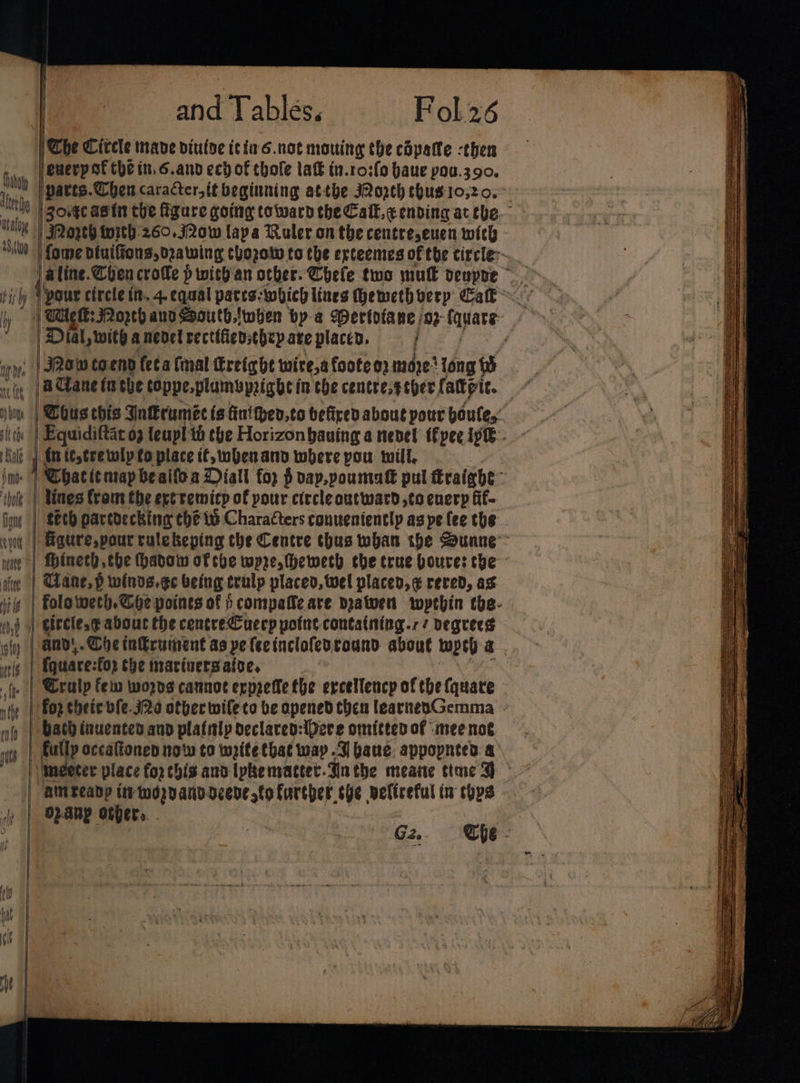 and Tables. Fol 26
The Circle made diuide it in 6. not mouing the cõpasse : then
euery of thẽ in. 6. and ech of those last in. 10: so haue you. 390.
parts. Then caracter, it beginning at the North thus 10, 20.
30. &c as in the figure going toward the East, & ending at the
North with 260. Now lay a Ruler on the centre, euen with
some diuisions, drawing thorow to the exteemes of the circle
a line. Then crosse yͤ with an other. These two must deuyde
your circle in. 4. equal parts: which lines sheweth very East
West: North and South, when by a Meridiane or square
Dial, with a nedel rectified, they are placed.
Now to end set a smal streight wire, a foote or more long wͭ
a Uane in the toppe, plumbvpright in the centre, ther fast pit.
Thus this Instrumẽt is finished, to be fixed about your house,
Equidistãt or leuyl wͭ the Horizon hauing a nedel if yee lyst
in it, trewly to place it, when and where you will.
That it may be also a Diall for yͤ day, you must pul straight
lines from the extremity of your circle outward, to euery fif-
tẽth part decking thẽ wͭ Characters conueniently as ye see the
figure, your rule keping the Centre thus whan the Sunne
shineth, the shadow of the wyre, sheweth the true houre: the
Uane, yͤ winds, &c being truly placed, wel placed, & rered, as
foloweth. The points of yͤ compasse are drawen wythin the
circle, & about the centre Euery point containing. 11 degrees
and. The instrument as ye see inclosed round about wyth a
square: for the mariners aide.
Truly few words cannot expresse the excellency of the square
for their vse. No other wise to be opened then learned Gemma
hath inuented and plainly declared: Here omitted of mee not
fully occasioned now to write that way. I haue appoynted a
meeter place for this and lyke matter. In the meane time I
am ready in word and deede, to further the desireful in thys
or any other.
G2. The